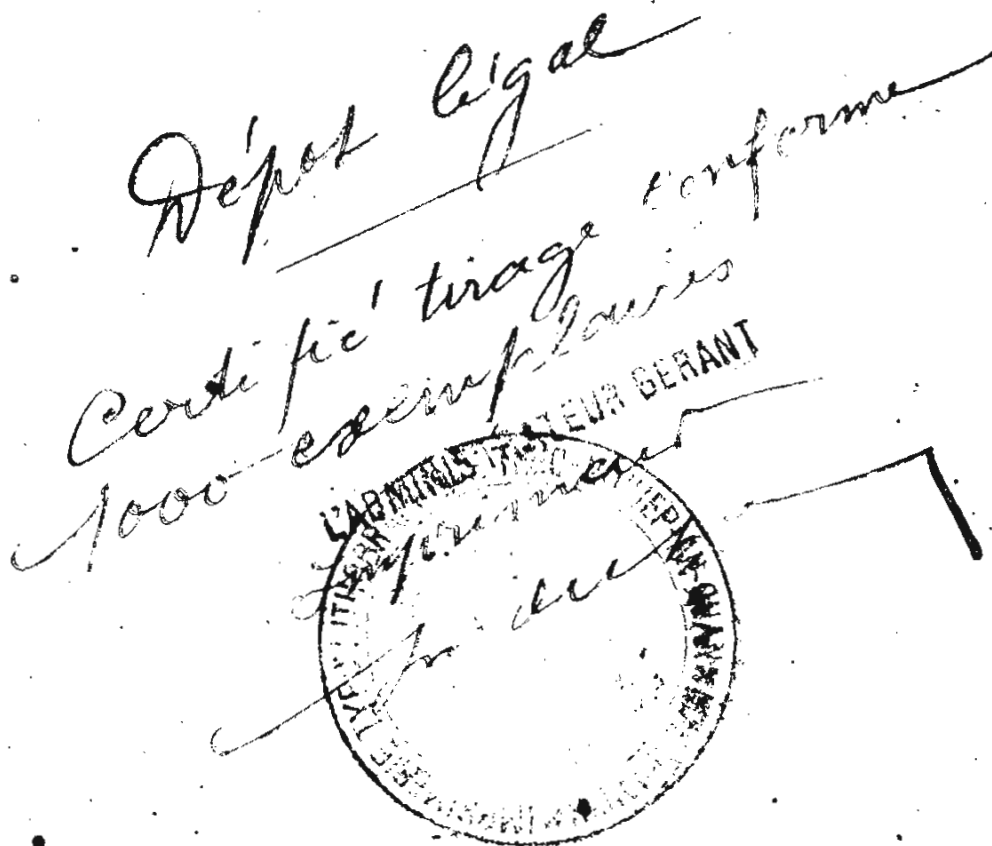 Dépot légal
Certifié tirage conforme
1000 exemplaires
L'ADMINISTRATEUR GERANT
Imprimeur